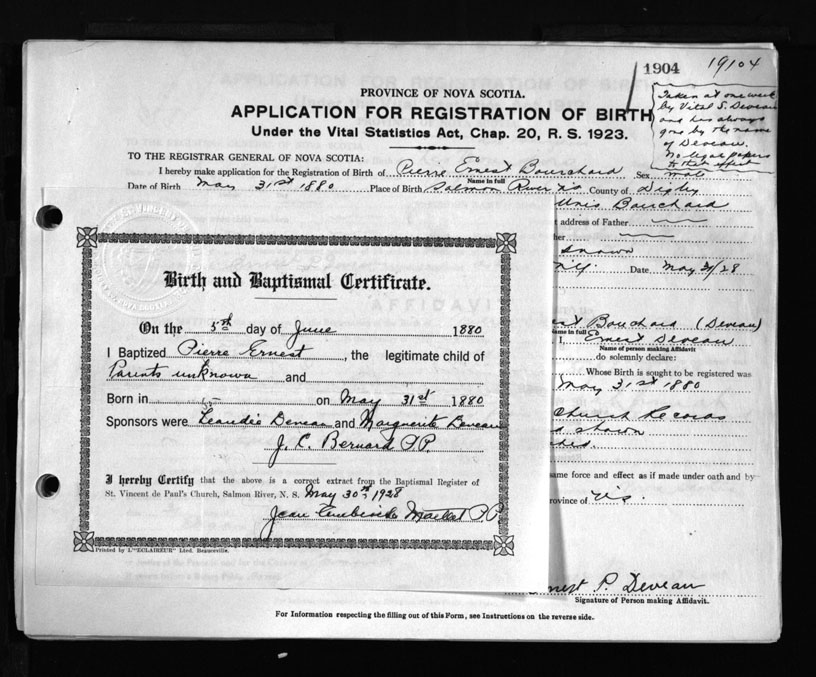 1904
19104
Taken at one week
by Vital S. Deveau
and has always
gone by the name
of Deveau.
No legal papers
to that effect
PROVINCE OF NOVA SCOTIA.
APPLICATION FOR REGISTRATION OF BIRTH
Under the Vital Statistics Act, Chap. 20, R. S. 1923.
TO THE REGISTRAR GENERAL OF NOVA SCOTIA:
I hereby make application for the Registration of Birth of Pierre Ernest Bouchard Sex male
Name in full
Date of Birth May 31st 1880 Place of Birth Salmon River NS County of Digby
Bouchard
address of Father
Date May 31/28
Birth and Baptismal Certificate.
On the 5th day of June 1880
I Baptized Pierre Ernest, the legitimate child of
Parents unknown and
Born in on May 31st 1880
Sponsors were Leandre Deveau and Marguerite Deveau
J. L. Bernard PP.
I hereby Certify that the above is a correct extract from the Baptismal Register of
St. Vincent de Paul's Church, Salmon River, N. S. May 30th 1928
Jean PP
Printed by L'"ECLAIREUR" Lted. Beauceville.
Bouchard (Deveau)
me in full
I, Ernest Deveau
Name of person making Affidavit
do solemnly declare:
Whose Birth is sought to be registered was
May 31st 1880
Church Records
shown
ame force and effect as if made under oath and by
rovince of N.S.
Ernest P. Deveau
Signature of Person making Affidavit.
For Information respecting the filling out of this Form, see Instructions on the reverse side.